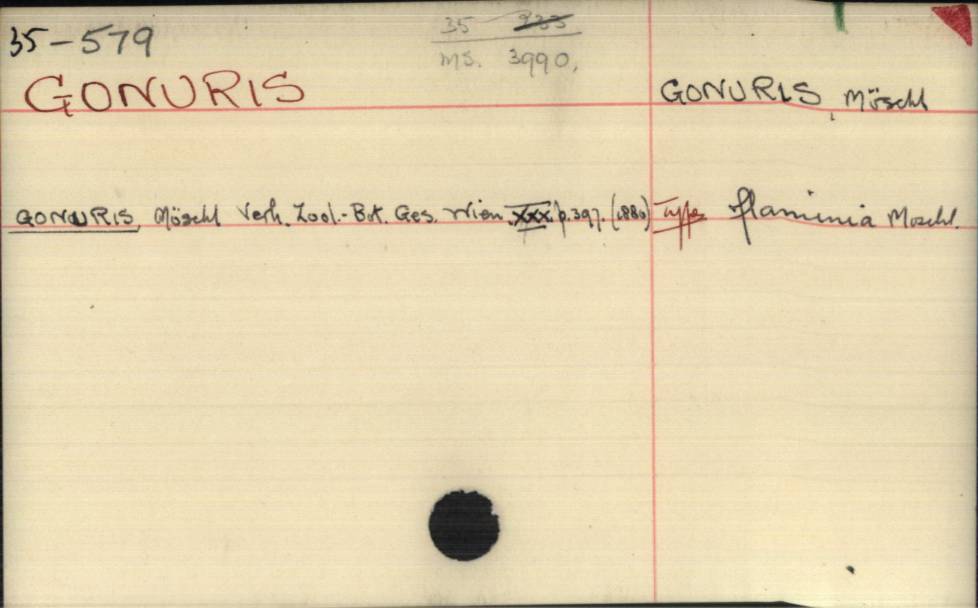 35-579
35 235
ms. 3990.
GONURIS
GONURIS, Möschl
GONURIS, Möschl Verh. Zool.-Bot. Ges. Wien. XXX. p. 397. (1880) Type flaminia Moschl.